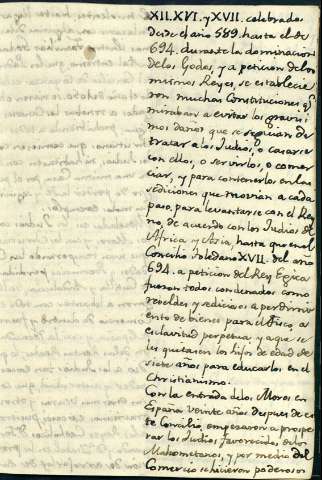 XII. XVI. y XVII. celebrados
desde el año 589. hasta el de
694. durante la dominacion
de los Godos, y a peticion de los
mismos Reyes, se establecie
ron muchas Constituciones q.e
miraban a evitar los gravisi
mos daños que se seguian de
tratar a los Judios, o casarse
con ellos, o servirlos, o comer
ciar, y para contenerlos en las
sediciones que movian a cada
paso, para levantarse con el Rey
no, de acuerdo con los Judios de
Africa y Asia, hasta que en el
Concilio Toledano XVII. del año
694. a peticion del Rey Egica
fueron todos condenados como
rebeldes, y sediciosos a perdimi
ento de bienes para el Fisco, a
esclavitud perpetua y a que se
les quitasen los hijos de edad de
siete años para educarlos en el
Christianismo.
Con la entrada de los Moros en
España veinte años despues de es
te Concilio, empezaron a prospe
rar los Judios favorecidos de los
Mahometanos, y por medio del
Comercio se hicieron poderosos